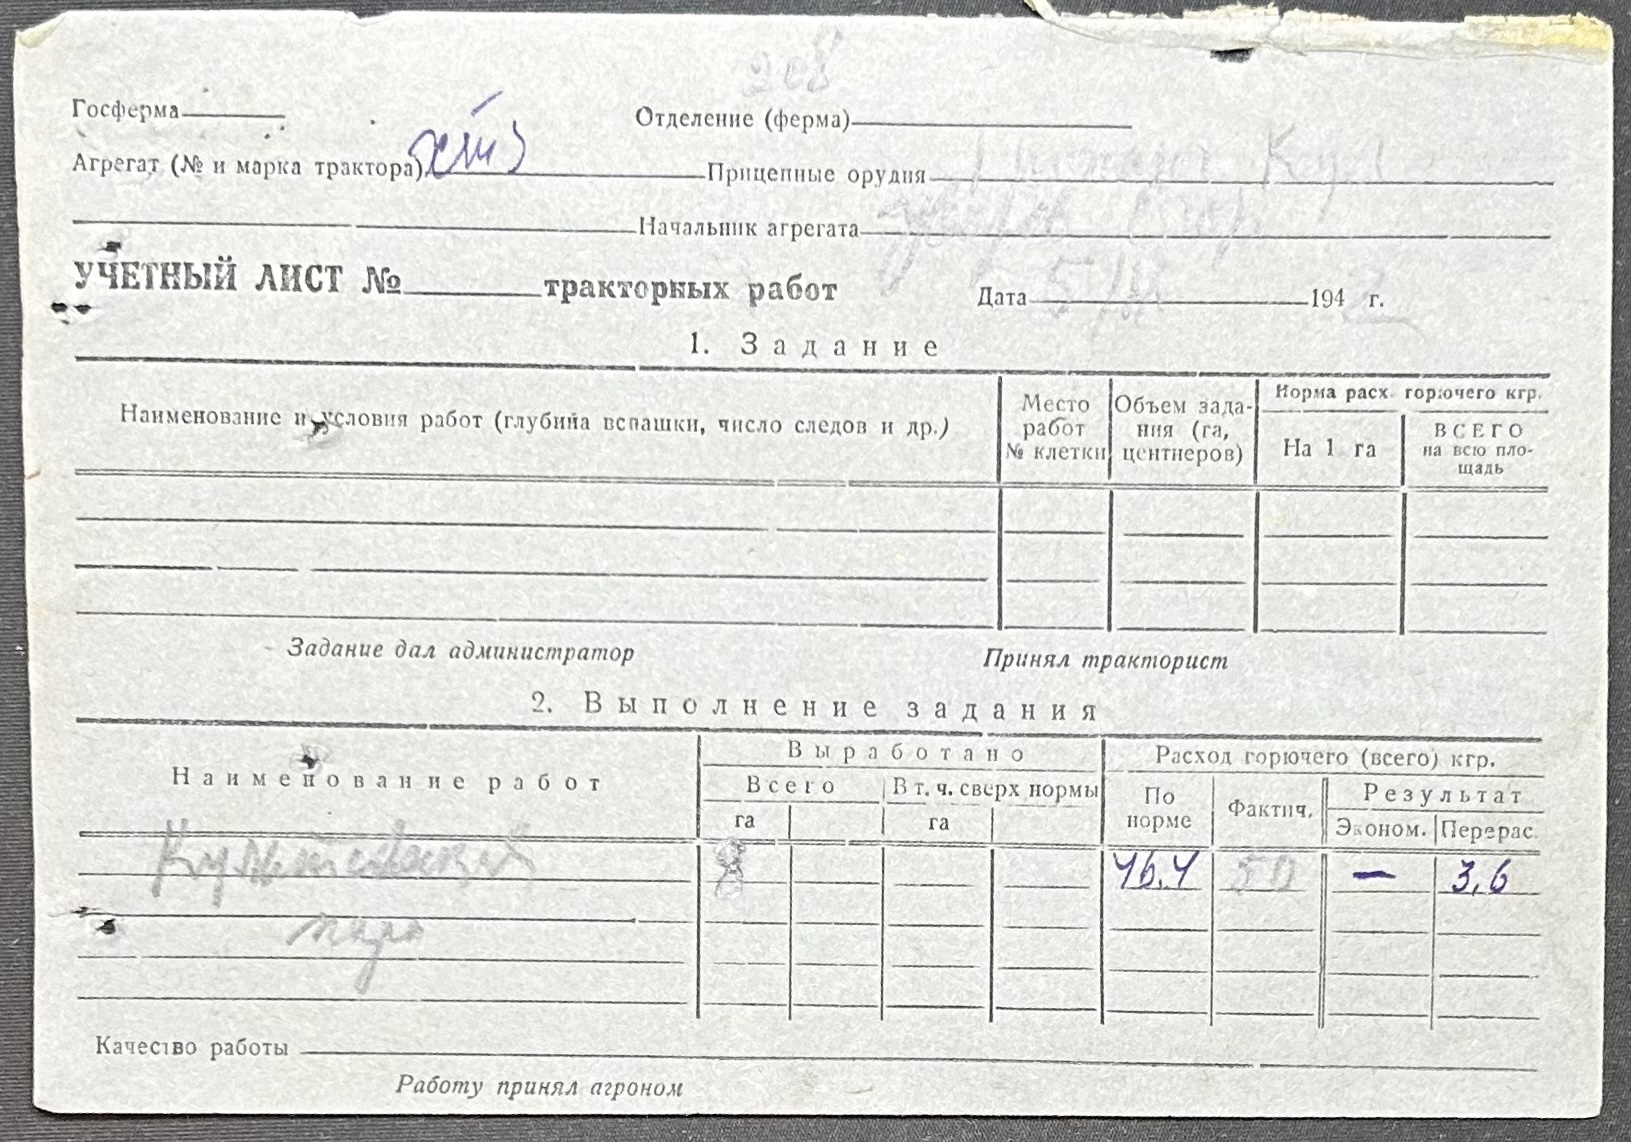 208
Госферма
Отделение (ферма)
Агрегат (№ и марка трактора) хтз
Прицепные орудия
Начальник агрегата
УЧЕТНЫЙ ЛИСТ № тракторных работ
Дата 194 2 г.
1. Задание
Наименование и условия работ (глубина вспашки, число следов и др.)
Место работ № клетки
Объем зада-
ния (га,
центнеров)
Норма расх. горючего кгр.
На 1 га
ВСЕГО
на всю пло-
щадь
Задание дал администратор
Принял тракторист
2. Выполнение задания
Наименование работ
Выработано
Расход горючего (всего) кгр.
Всего
В т. ч. сверх нормы
га
га
По норме
Фактич.
Результат
Эконом.
Перерас.
46.4
50
—
3,6
пара
Качество работы
Работу принял агроном